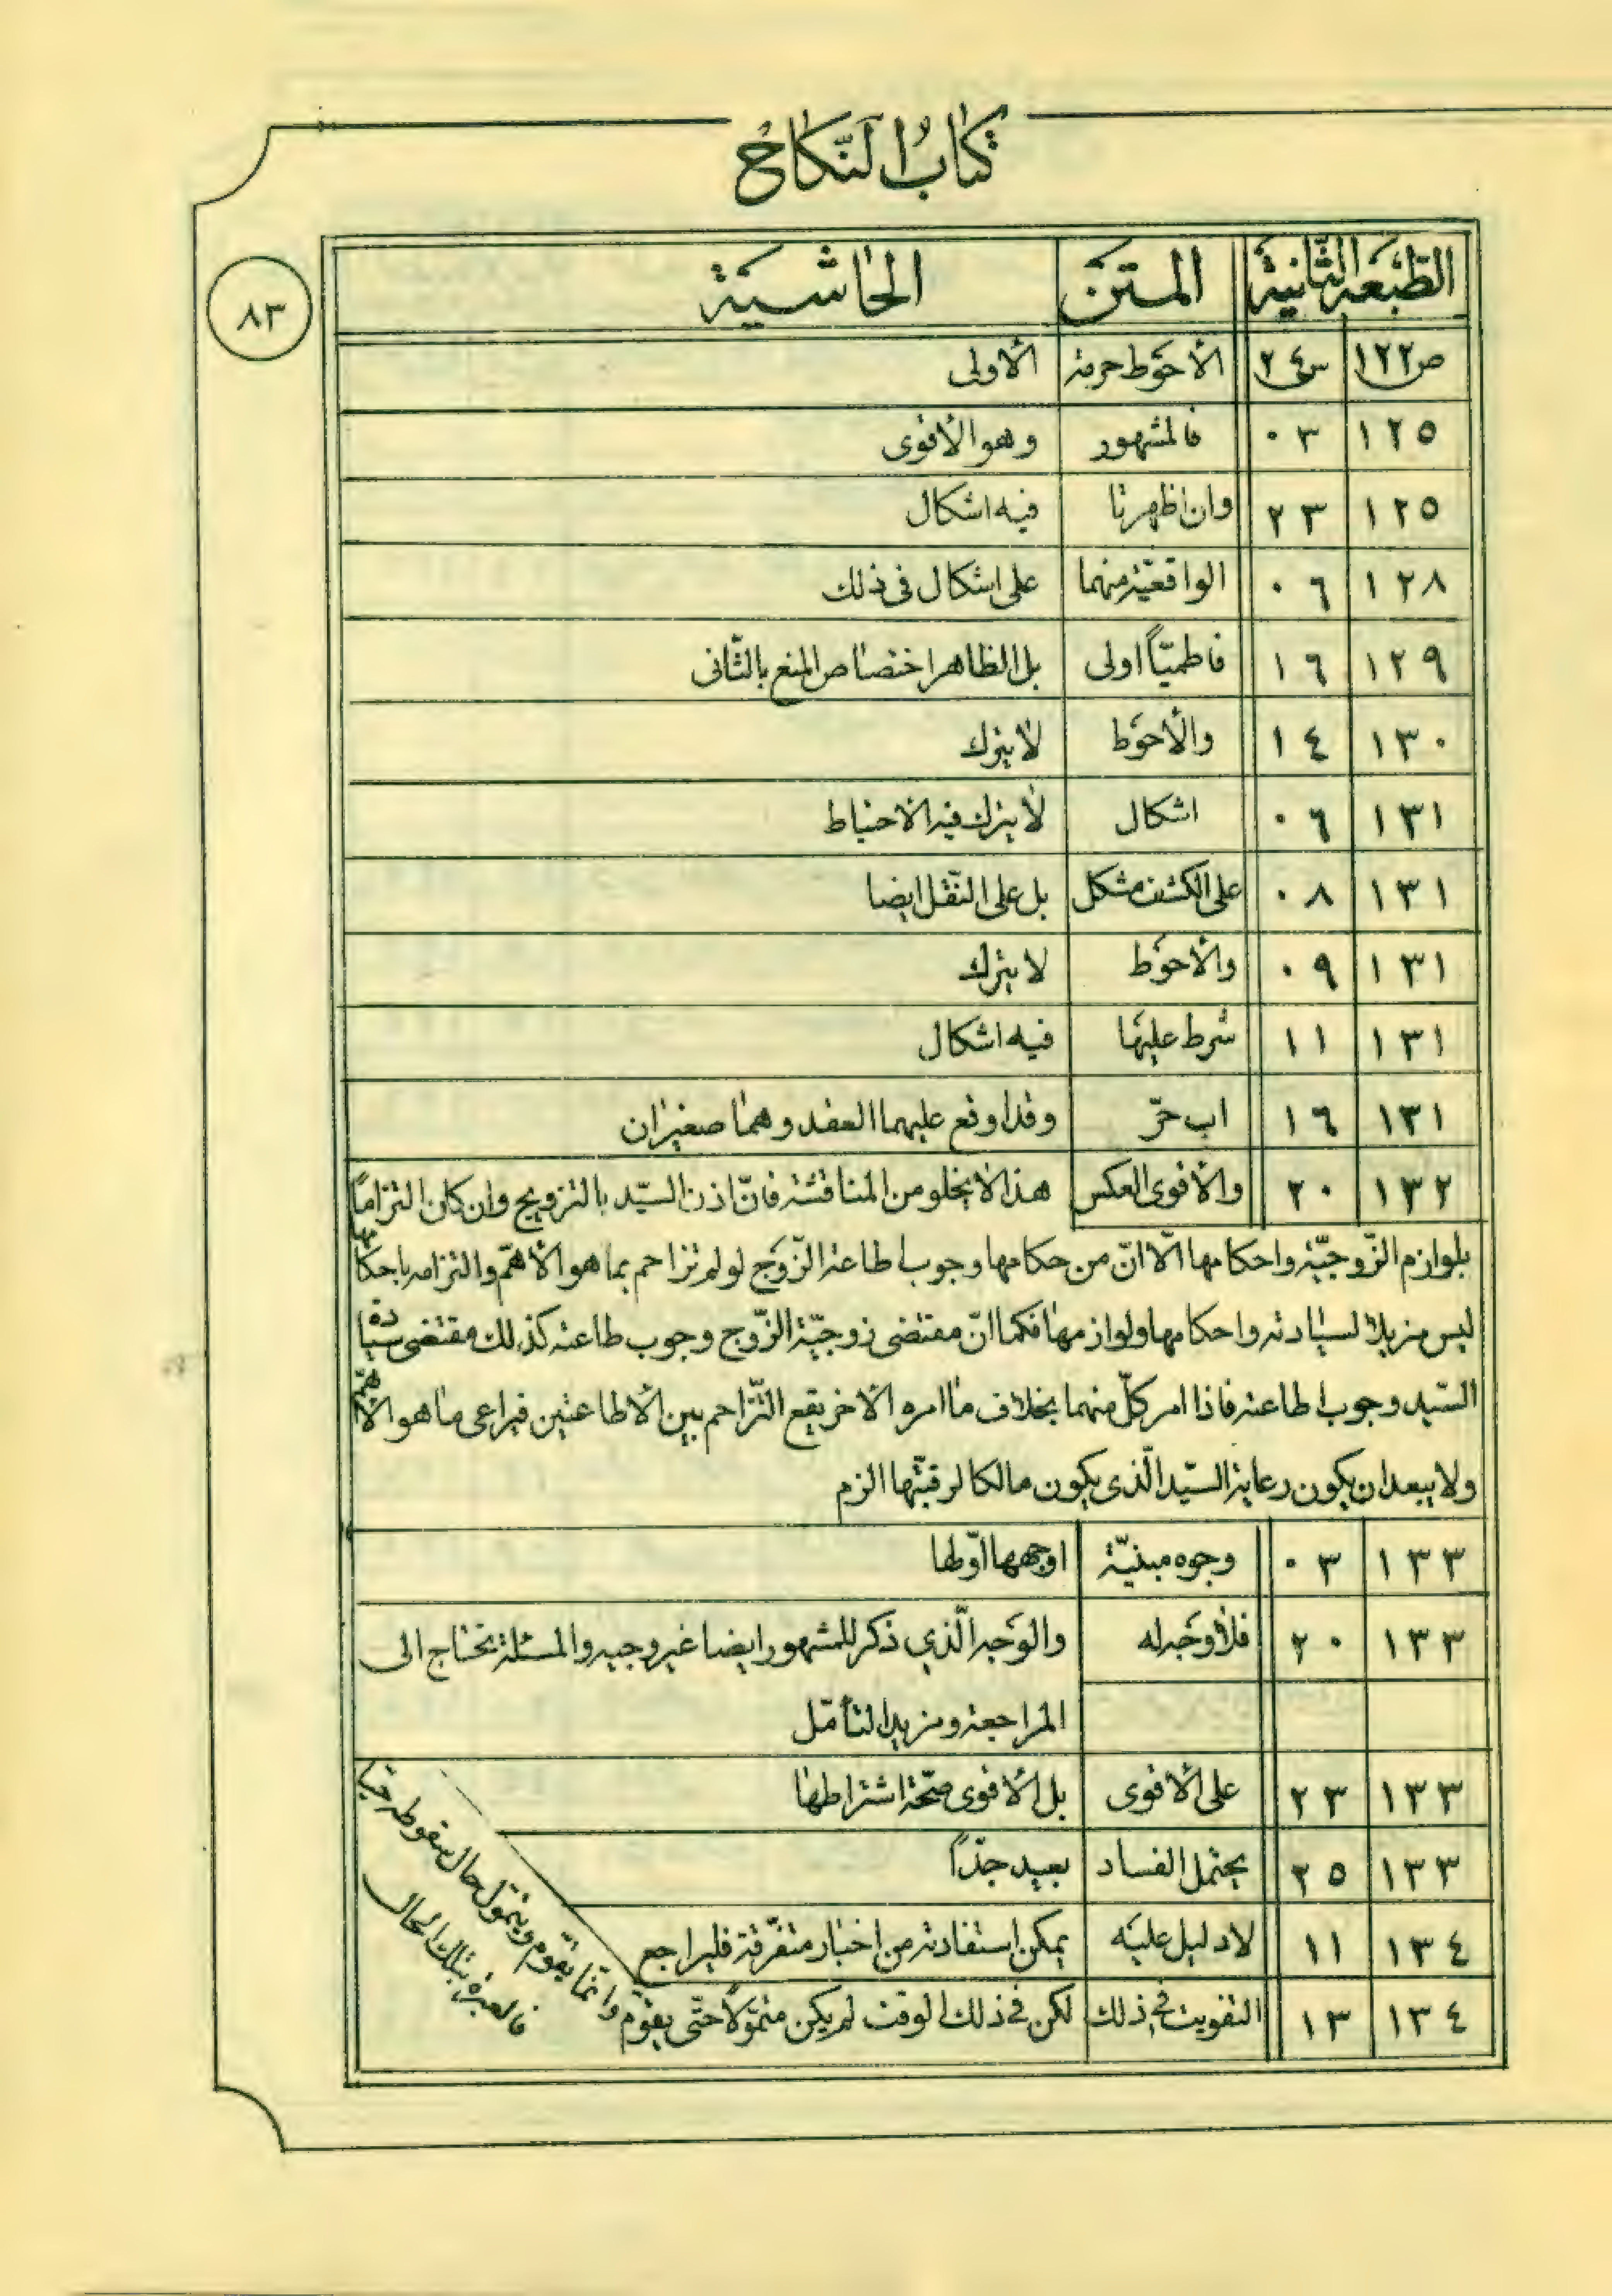 كتاب النّكاح
٨٣
الطّبعة الثّانية المتن الحاشية
ص١٢٢ س٢٤ الأحوط حرمة الأولى
١٢٥ ٠٣ فالمشهور وهو الأقوى
١٢٥ ٢٣ وان اظهرنا فيه اشكال
١٢٨ ٠٦ الواقعيّة منهما على اشكال فى ذلك
١٢٩ ١٦ فاطميّاً اولى بل الظاهر اختصاص المنع بالثّانى
١٣٠ ١٤ والأحوط لا يترك
١٣١ ٠٦ اشكال لا يترك فيه الاحتياط
١٣١ ٠٨ على الكشف مشكل بل على النّقل ايضا
١٣١ ٠٩ والأحوط لا يترك
١٣١ ١١ شرط عليها فيه اشكال
١٣١ ١٦ اب حرّ وقد اوقع عليهما العقد وهما صغيران
١٣٢ ٢٠ والأقوى العكس هذا لا يخلو من المناقشة فانّ اذن السيّد بالتزويج وان كان التزاماً
بلوازم الزّوجيّة واحكامها الّا انّ من حكامها وجوب اطاعة الزّوج لو لم تزاحم بما هو الأهمّ والتزامه باحكامها
ليس مزيلا لسيادته واحكامها ولوازمها فكما انّ مقتضى زوجيّة الزّوج وجوب طاعته كذلك مقتضى سيادة
السّيد وجوب اطاعته فاذا امر كلّ منهما بخلاف ما امره الآخر يقع التّزاحم بين الأطاعتين فيراعى ما هو الأهمّ
ولا يبعد ان يكون رعاية السيّد الّذى يكون مالكا لرقبتها الزم
١٣٣ ٠٣ وجوه مبنيّة اوجهها اوّلها
١٣٣ ٢٠ فلا وجه له والوجه الّذي ذكر للمشهور ايضا غير وجيه والمسئلة تحتاج الى
المراجعة ومزيد التأمّل
١٣٣ ٢٣ على الأقوى بل الأقوى صحّة اشتراطها
١٣٣ ٢٥ يحتمل الفساد بعيد جدّاً
١٣٤ ١١ لا دليل عليه يمكن استفادته من اخبار متفرّقة فليراجع
١٣٤ ١٣ التفويت في ذلك لكن في ذلك الوقت لم يكن متموّلاً حتّى يقوّم
وانّما يقوّم ويتموّل حال سقوطه حيّا
فالعبرة بتلك الحال